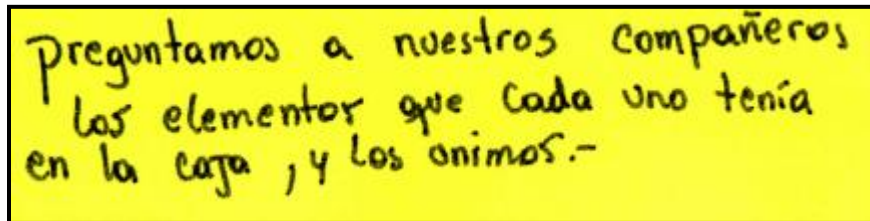 Preguntamos a nuestros compañeros
los elementos que cada uno tenía
en la caja, y los unimos.-